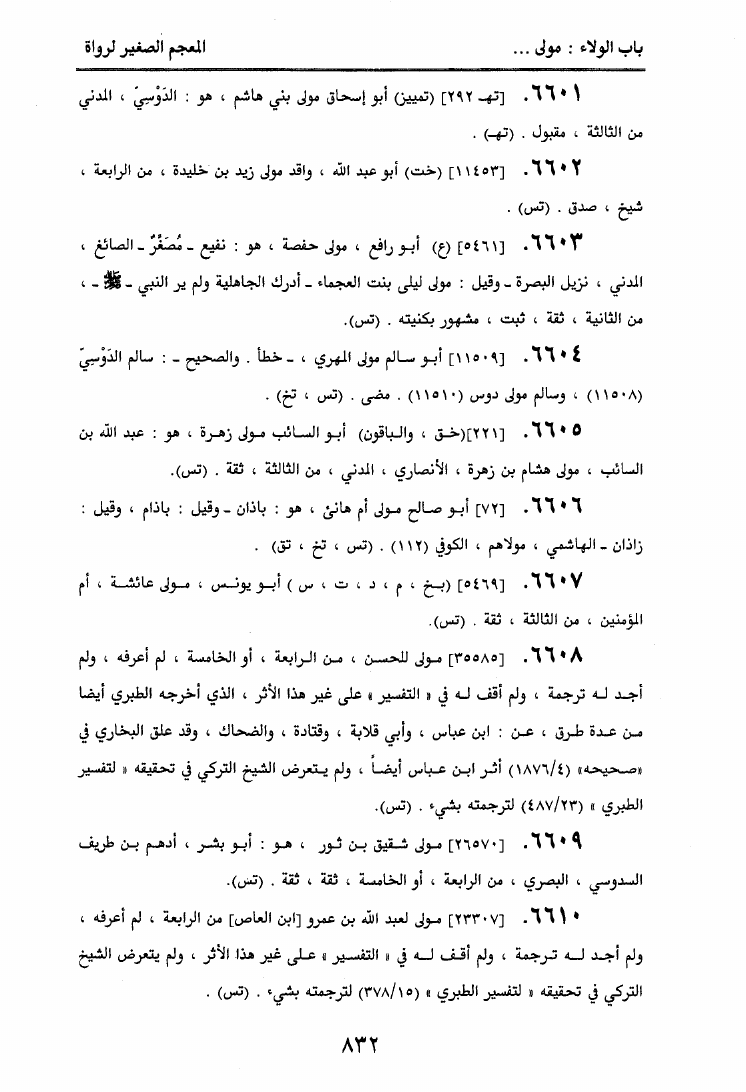 باب الولاء : مولى ... المعجم الصغير لرواة
٦٦٠١. [تهـ ٢٩٢] (تمييز) أبو إسحاق مولى بني هاشم ، هو : الدَوْسِيّ ، المدني
من الثالثة ، مقبول . (تهـ) .
٦٦٠٢. [١١٤٥٣] (خت) أبو عبد الله ، واقد مولى زيد بن خليدة ، من الرابعة ،
شيخ ، صدق . (تس) .
٦٦٠٣. [٥٤٦١] (ع) أبو رافع ، مولى حفصة ، هو : نفيع ـ مُصَغَّرٌ ـ الصائغ ،
المدني ، نزيل البصرة ـ وقيل : مولى ليلى بنت العجماء ـ أدرك الجاهلية ولم ير النبي ـ ﷺ ـ ،
من الثانية ، ثقة ، ثبت ، مشهور بكنيته . (تس).
٦٦٠٤. [١١٥٠٩] أبو سالم مولى المهري ، ـ خطأ . والصحيح ـ : سالم الدَوْسِيّ
(١١٥٠٨) ، وسالم مولى دوس (١١٥١٠) . مضى . (تس ، تخ) .
٦٦٠٥. [٢٢١](خـق ، والباقون) أبو السائب مولى زهرة ، هو : عبد الله بن
السائب ، مولى هشام بن زهرة ، الأنصاري ، المدني ، من الثالثة ، ثقة . (تس).
٦٦٠٦. [٧٢] أبو صالح مولى أم هانئ ، هو : باذان ـ وقيل : باذام ، وقيل :
زاذان ـ الهاشمي ، مولاهم ، الكوفي (١١٢) . (تس ، تخ ، تق) .
٦٦٠٧. [٥٤٦٩] (بخ ، م ، د ، ت ، س ) أبو يونس ، مولى عائشة ، أم
المؤمنين ، من الثالثة ، ثقة . (تس).
٦٦٠٨. [٣٥٥٨٥] مولى للحسن ، من الرابعة ، أو الخامسة ، لم أعرفه ، ولم
أجد له ترجمة ، ولم أقف له في « التفسير » على غير هذا الأثر ، الذي أخرجه الطبري أيضا
من عدة طرق ، عن : ابن عباس ، وأبي قلابة ، وقتادة ، والضحاك ، وقد علق البخاري في
«صحيحه» (١٨٧٦/٤) أثر ابن عباس أيضاً ، ولم يتعرض الشيخ التركي في تحقيقه « لتفسير
الطبري » (٤٨٧/٢٣) لترجمته بشيء . (تس).
٦٦٠٩. [٢٦٥٧٠] مولى شقيق بن ثور ، هو : أبو بشر ، أدهم بن طريف
السدوسي ، البصري ، من الرابعة ، أو الخامسة ، ثقة ، ثقة . (تس).
٦٦١٠. [٢٣٣٠٧] مولى لعبد الله بن عمرو [ابن العاص] من الرابعة ، لم أعرفه ،
ولم أجد له ترجمة ، ولم أقف له في « التفسير » على غير هذا الأثر ، ولم يتعرض الشيخ
التركي في تحقيقه « لتفسير الطبري » (٣٧٨/١٥) لترجمته بشيء . (تس) .
٨٣٢